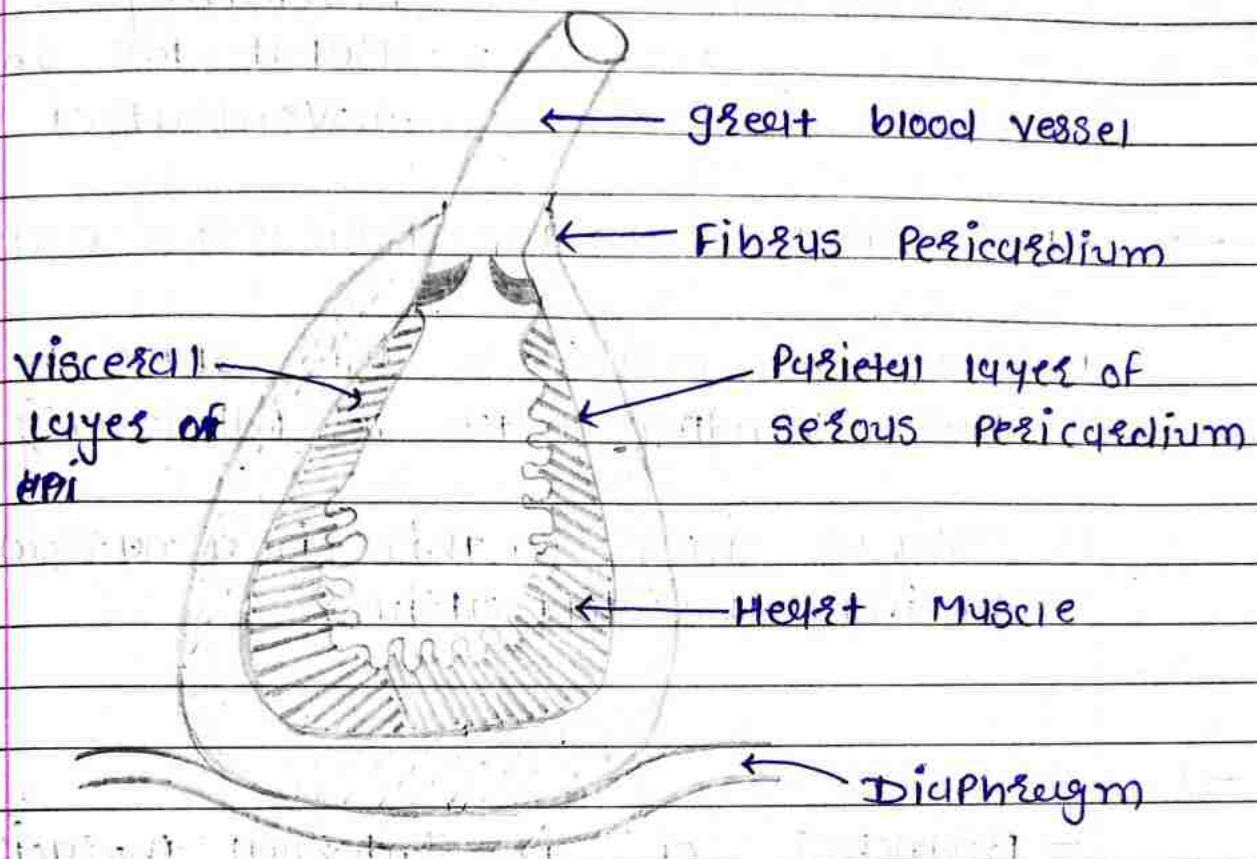 great blood vessel
Fibrus Pericardium
visceral
Layer of
epi
Parietal layer of
serous pericardium
Heart Muscle
Diaphragm